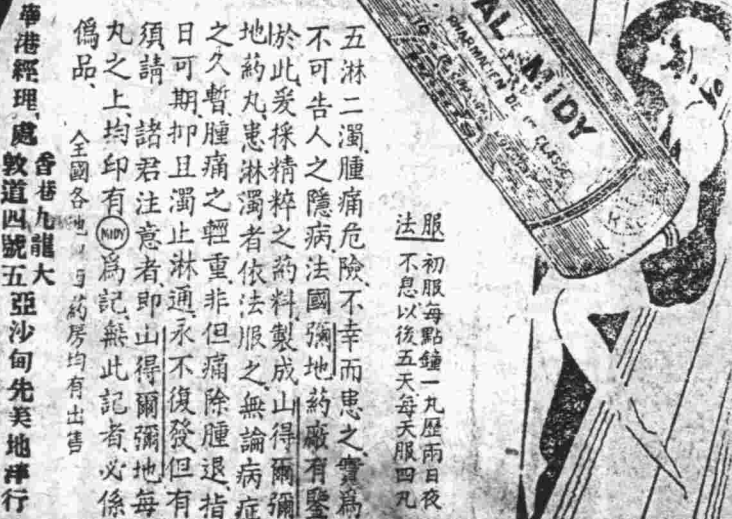 AL MIDY
PHARMACIEN DE 1re CLASSE
服法
初服每點鐘一丸歷兩日夜
不息以後五天每天服四丸
五淋二濁、腫痛危險、不幸而患之、實爲
不可告人之隱病、法國彌地葯廠有鑒
於此爰採精粹之葯料製成山得爾彌
地葯丸、患淋濁者依法服之、無論病症
之久暫、腫痛之輕重、非但痛除腫退、指
日可期、抑且濁止淋通、永不復發、但有
須請 諸君注意者、即山得爾彌地每
丸之上、均印有MIDY爲記、無此記者、必係
僞品、
全國各地葯房均有出售
華港經理處
香港九龍大
敦道四號五
亞沙甸先美地洋行